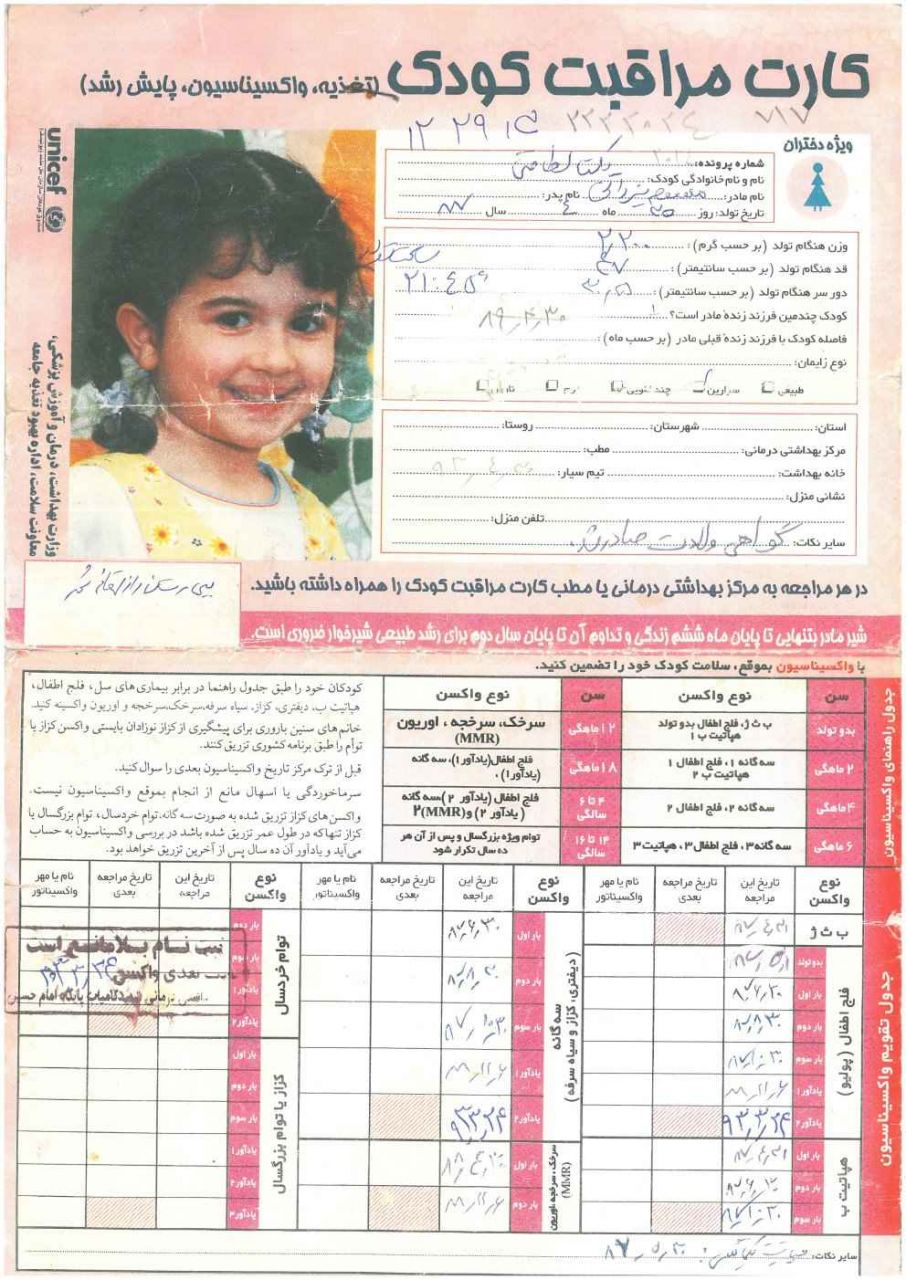 کارت مراقبت کودک (تغذیه، واکسیناسیون، پایش رشد)
۷۱۷
ویژه دختران
unicef
شماره پرونده:
نام و نام خانوادگی کودک: یکتا
نام مادر: معصومه نام پدر:
تاریخ تولد: روز ۳۰ ماه ۴ سال ۸۷
وزن هنگام تولد (بر حسب گرم): ۲,۲۰۰
قد هنگام تولد (بر حسب سانتیمتر): ۴۷
دور سر هنگام تولد (بر حسب سانتیمتر):
کودک چندمین فرزند زنده مادر است؟ ۱
فاصله کودک با فرزند زنده قبلی مادر (بر حسب ماه):
نوع زایمان:
طبیعی سزارین چند قلویی
استان: شهرستان: روستا:
مرکز بهداشتی درمانی: مطب:
خانه بهداشت: تیم سیار:
نشانی منزل:
تلفن منزل:
سایر نکات: گواهی ولادت صادر شد.
وزارت بهداشت، درمان و آموزش پزشکی،
معاونت سلامت، اداره بهبود تغذیه جامعه
در هر مراجعه به مرکز بهداشتی درمانی یا مطب کارت مراقبت کودک را همراه داشته باشید.
شیر مادر بتنهایی تا پایان ماه ششم زندگی و تداوم آن تا پایان سال دوم برای رشد طبیعی شیرخوار ضروری است.
با واکسیناسیون بموقع، سلامت کودک خود را تضمین کنید.
جدول راهنمای واکسیناسیون
سن نوع واکسن سن نوع واکسن
بدو تولد ب ث ژ، فلج اطفال بدو تولد هپاتیت ب ۱
۱۲ ماهگی سرخک، سرخجه، اوریون (MMR)
۲ ماهگی سه گانه ۱، فلج اطفال ۱ هپاتیت ب ۲
۱۸ ماهگی فلج اطفال (یادآور ۱)، سه گانه (یادآور ۱)،
۴ ماهگی سه گانه ۲، فلج اطفال ۲
۴ تا ۶ سالگی فلج اطفال (یادآور ۲) سه گانه (یادآور ۲) و (MMR)۲
۶ ماهگی سه گانه ۳، فلج اطفال ۳، هپاتیت ۳
۱۴ تا ۱۶ سالگی توام ویژه بزرگسال و پس از آن هر ده سال تکرار شود
کودکان خود را طبق جدول راهنما در برابر بیماری های سل، فلج اطفال،
هپاتیت ب، دیفتری، کزاز، سیاه سرفه، سرخک، سرخجه و اوریون واکسینه کنید.
خانم های سنین باروری برای پیشگیری از کزاز نوزادان بایستی واکسن کزاز یا
توأم را طبق برنامه کشوری تزریق کنند.
قبل از ترک مرکز تاریخ واکسیناسیون بعدی را سوال کنید.
سرماخوردگی یا اسهال مانع از انجام بموقع واکسیناسیون نیست.
واکسن های کزاز تزریق شده به صورت سه گانه، توام خردسال، توام بزرگسال یا
کزاز تنها که در طول عمر تزریق شده باشد در بررسی واکسیناسیون به حساب
می آید و یادآور آن ده سال پس از آخرین تزریق خواهد بود.
جدول تقویم واکسیناسیون
نوع واکسن تاریخ این مراجعه تاریخ مراجعه بعدی نام یا مهر واکسیناتور
نوع واکسن تاریخ این مراجعه تاریخ مراجعه بعدی نام یا مهر واکسیناتور
نوع واکسن تاریخ این مراجعه تاریخ مراجعه بعدی نام یا مهر واکسیناتور
ب ث ژ
فلج اطفال (پولیو)
بدو تولد
بار اول ۸۷,۶,۳۰
بار دوم ۸۷,۸,۳۰
بار سوم ۸۷,۱۰,۳۰
یادآور ۱ ۸۸,۱۱,۶
یادآور ۲ ۹۳,۳,۲۴
هپاتیت ب
بار اول
بار دوم ۸۷,۶,۳۰
بار سوم ۸۷,۱۰,۳۰
سه گانه (دیفتری، کزاز و سیاه سرفه)
بار اول ۸۷,۶,۳۰
بار دوم ۸۷,۸,۳۰
بار سوم ۸۷,۱۰,۳۰
یادآور ۱ ۸۸,۱۱,۶
یادآور ۲ ۹۳,۳,۲۴
سرخک، سرخجه، اوریون (MMR)
بار اول ۸۸,۴,۳۰
بار دوم ۸۸,۱۱,۶
توام خردسال
بار دوم
بار سوم
یادآور ۱
یادآور ۲
کزاز یا توام بزرگسال
بار اول
بار دوم
بار سوم
یادآور ۱
یادآور ۲
یادآور ۳
سایر نکات: ۸۷,۵,۲۰